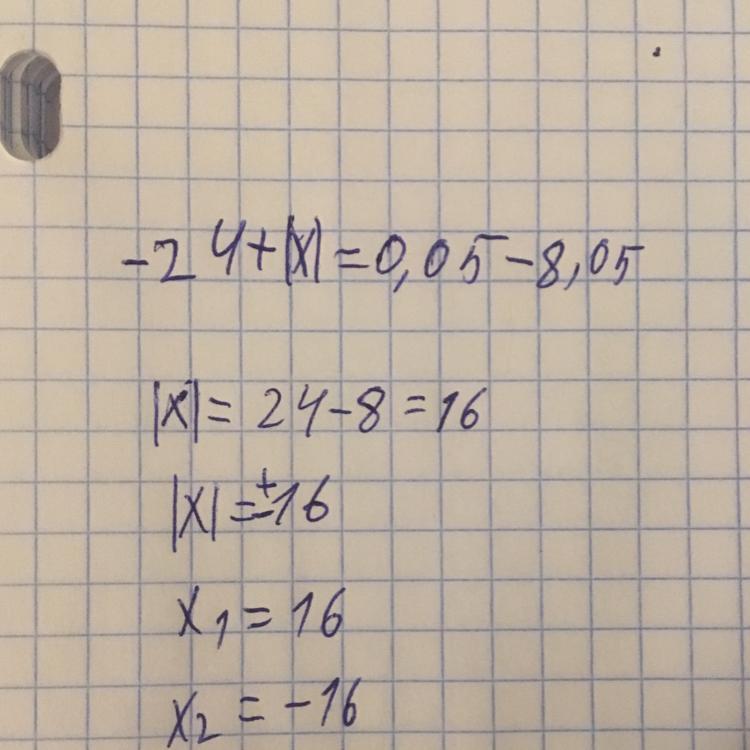 -24+|x|=0,05-8,05
|x|=24-8=16
|x|=±16
x₁=16
x₂=-16